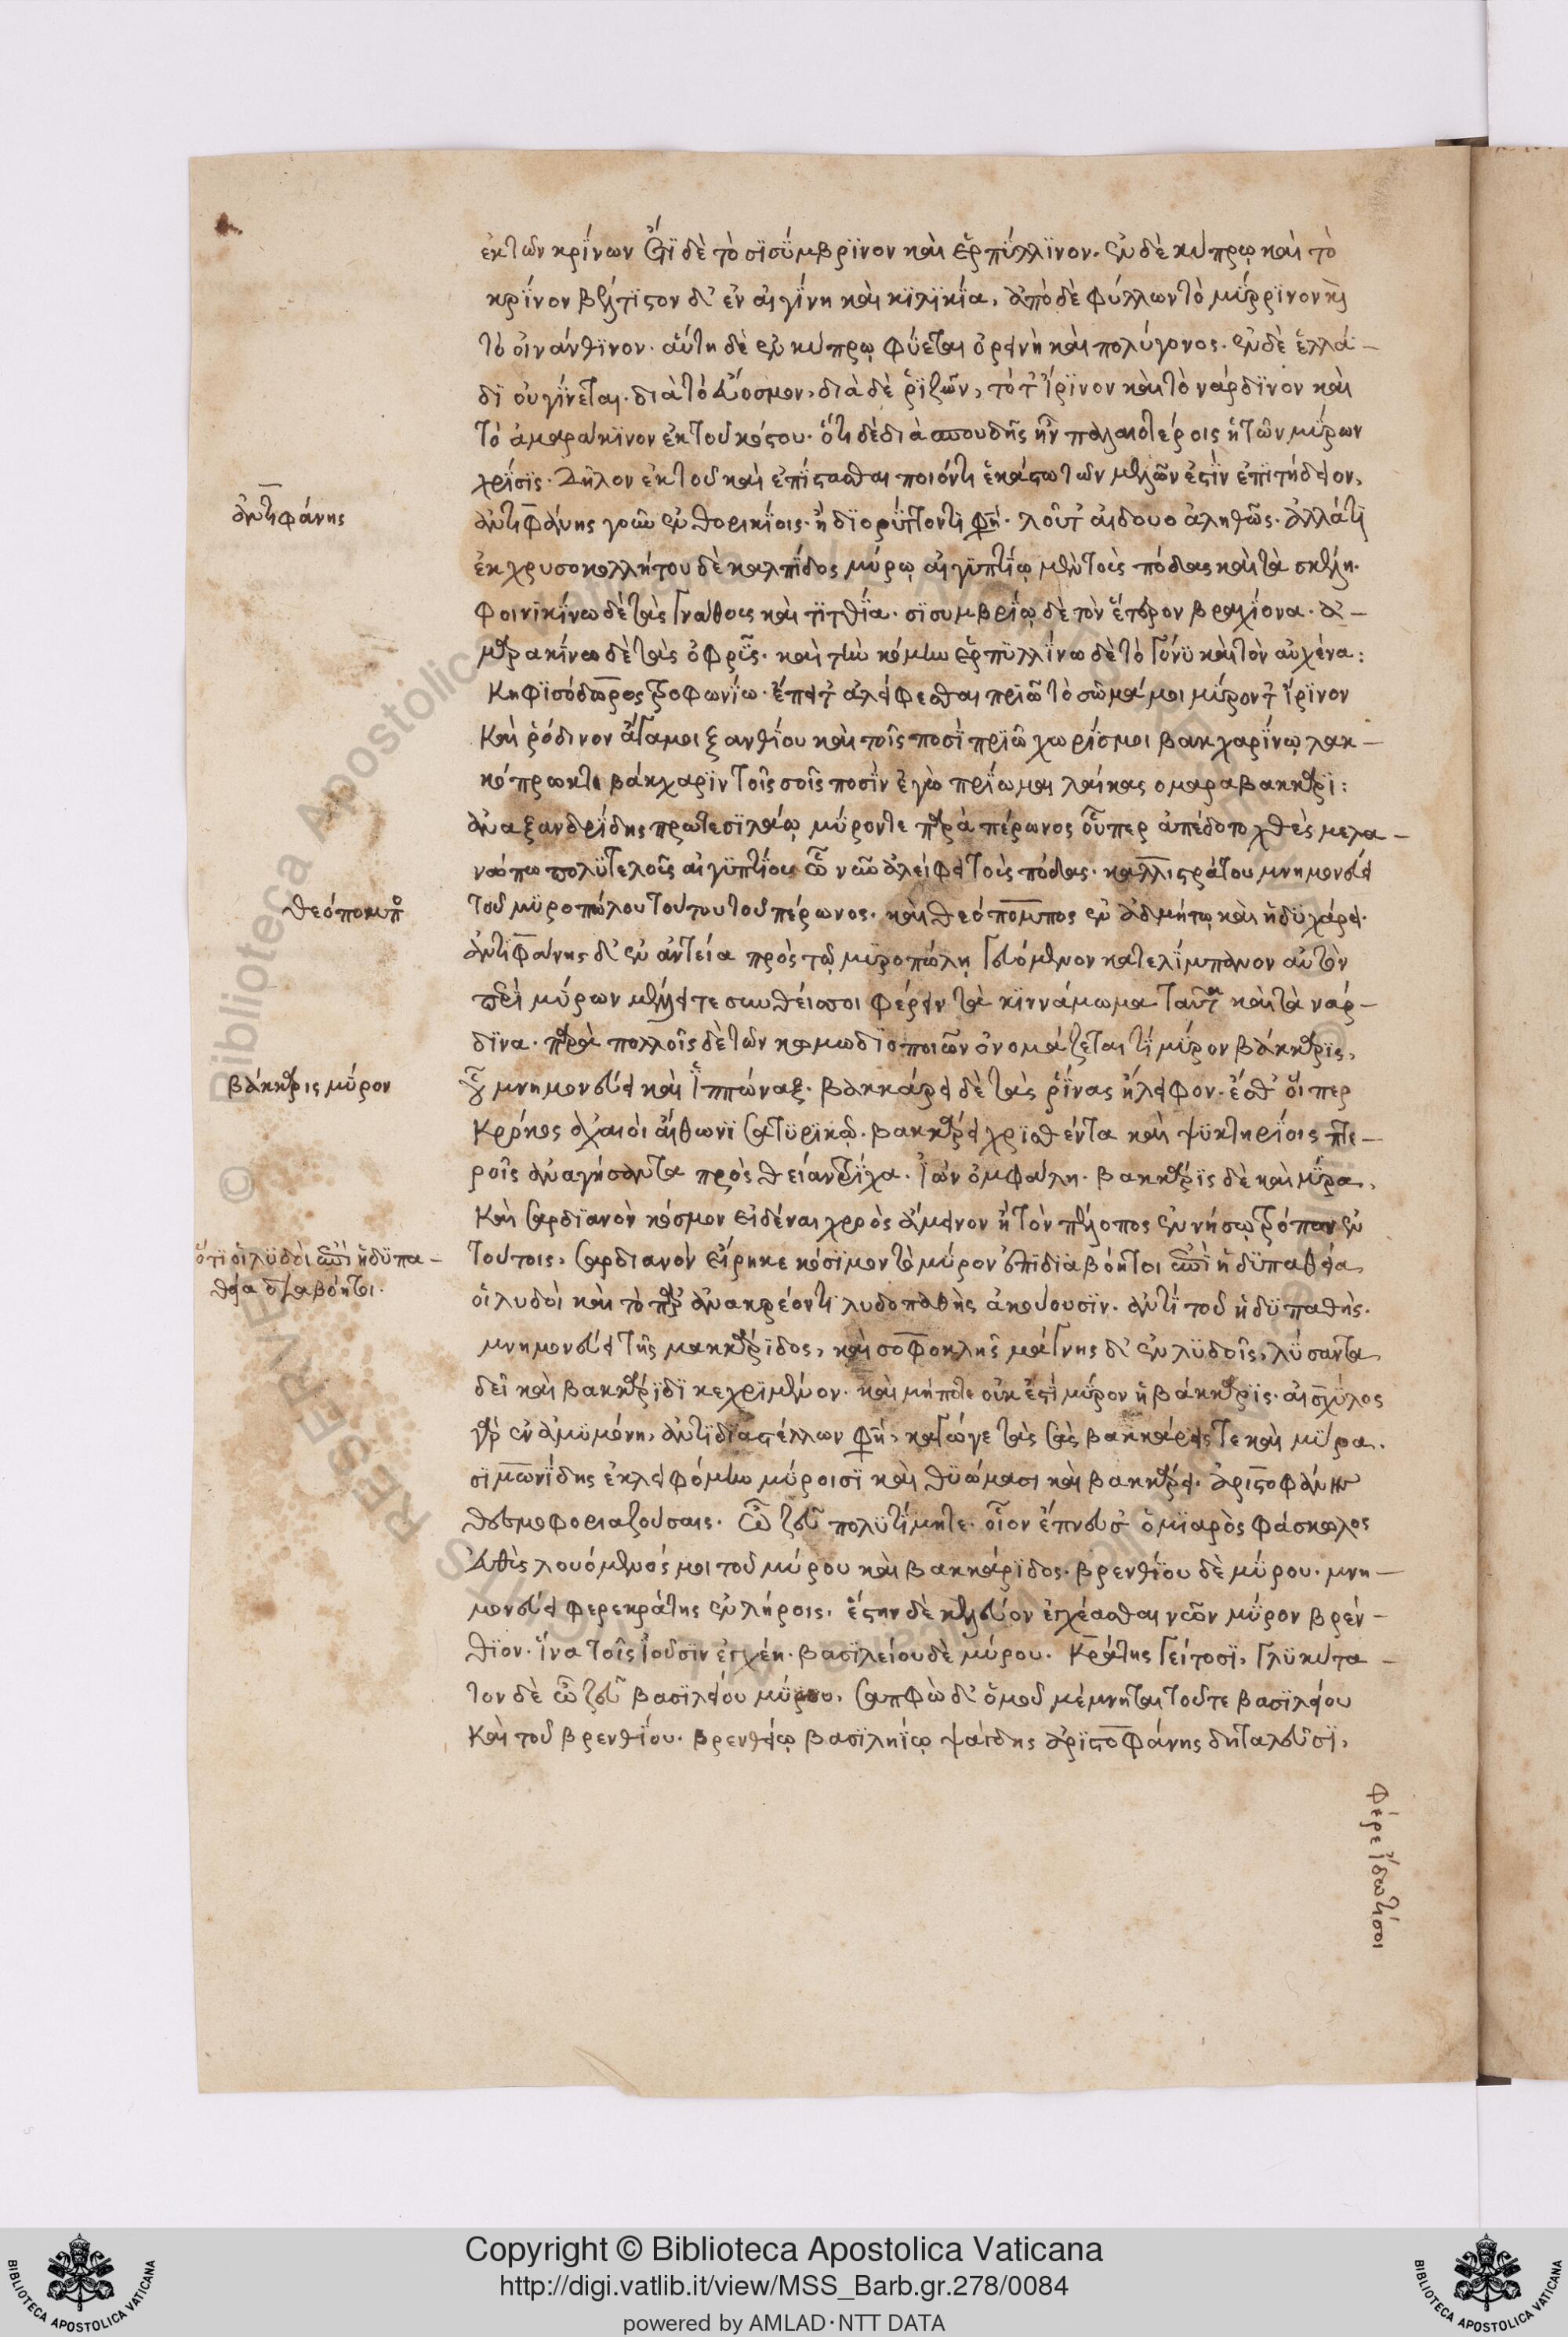 ἐκ τῶν κρίνων ἔτι δὲ τὸ σϊσΰμβρϊνον καὶ ἑρπΰλλϊνον. ἐν δὲ κύπρῳ καὶ τὸ
κρΐνον βέλτϊστον δ' ἐν αἰγΐνη καὶ κϊλϊκΐα, ἀπὸ δὲ φύλλων τὸ μΰρρϊνον καὶ
τὸ οἰνάνθϊνον. αὕτη δὲ ἐν κύπρῳ φΰεται ὀρεινὴ καὶ πολύγονος. ἐν δὲ ἑλλά-
δϊ οὐ γΐνεται. διὰ τὸ ἄνοσμον, διὰ δὲ ῥϊζῶν, τό τ' ἴρϊνον καὶ τὸ νάρδϊνον καὶ
τὸ ἀμαράκϊνον ἐκ τοῦ κόστου. ὅτι δὲ διὰ σπουδῆς ἦν παλαιοτέροις ἡ τῶν μΰρων
χρῖσϊς. δῆλον ἐκ τοῦ καὶ ἐπΐστασθαι ποιόν τι ἑκάστω τῶν μελῶν ἐστὶν ἐπϊτήδειον,
ἀντιφάνης
ἀντιφάνης γοῦν ἐν θορικΐοις. ἢ δϊορΰττοντι φησί. λοῦτ' αἰδουο ἀληθῶς. ἀλλὰ τΐ
ἐκ χρυσοκολλήτου δὲ καλπΐδος μύρῳ αἰγϋπτΐῳ μὲν τοὺς πόδας καὶ τὰ σκέλη.
φοινϊκΐνω δὲ τὰς γνάθους καὶ τϊτθΐα. σϊσυμβρΐῳ δὲ τὸν ἕτερον βραχΐονα. ἀ-
μαρακΐνω δὲ τὰς ὀφρῦς. καὶ τὴν κόμην ἑρπϋλλΐνω δὲ τὸ γόνϋ καὶ τὸν αὐχένα:
κηφϊσόδωρος τροφωνΐω. ἔπειτ' ἀλείφεσθαι πρίω τὸ σῶμά μοι μΰρον τ' ἴρϊνον
καὶ ῥόδινον ἄγαμοι ξανθΐου καὶ τοῖς ποσὶ πρίω χωρΐς μοι βακχαρΐνῳ λακ-
κόπρωκτε βάκχαρϊν τοῖς σοῖς ποσὶν ἐγὼ πρΐωμαι λαίκας ομαραβακκαρϊ:
ἀναξανδρΐδης πρωτεσϊλάῳ μΰρον τε παρὰ πέρωνος οὗπερ ἀπέδοτο χθὲς μελα-
νώπω πολϋτελοῦς αἰγϋπτΐου ᾧ νῦν ἀλείφει τοὺς πόδας. καλλιστράτου μνημονεύει
θεόπομπος
τοῦ μϋροπώλου τούτου τοῦ πέρωνος. καὶ θεόπομπος ἐν ἀδμήτῳ καὶ ἡδϋχάρει.
ἀντιφάνης δ' ἐν ἀντεία πρὸς τῷ μϋροπώλη γευόμενον κατελΐμπανον αὐτὸν
περὶ μύρων μέλλει τε συνθείς σοι φέρειν τὰ κϊννάμωμα ταῦτα καὶ τὰ ναρ-
δϊνα. παρὰ πολλοῖς δὲ τῶν κωμωδϊοποιῶν ὀνομάζεται τΐ μΰρον βάκκαρϊς,
βάκκαρις μΰρον
οὗ μνημονεύει καὶ ἱππώναξ. βακκάρει δὲ τὰς ῥΐνας ἤλειφον. ἔσθ' οἵπερ
κρόκος ἀχαιὸι αἴθωνϊ σατϋρϊκῷ. βακκάρει χρϊσθέντα καὶ ψϋκτηρΐοις πτε-
ροῖς ἀναγήσαντα πρὸς θείαν τρΐχα. ἴων ὀμφάλη. βακκάρϊς δὲ καὶ μΰρα,
καὶ σαρδϊανὸν κόσμον εἰδέναι χρὸς ἄμεινον ἢ τὸν πέλοπος ἐν νήσῳ τρόπον ἐν
ὅτι οἱ λϋδοὶ ἐπὶ ἡδϋπα-
θεία διαβόητοι.
τούτοις, σαρδιανὸν εἴρηκε κόσϊμον τὸ μύρον ἐπεὶ διαβόητοι ἐπὶ ἡδϋπαθεία
οἱ λυδοὶ καὶ τὸ παρ' ἀνακρέοντι λυδοπαθὴς ἀκούουσϊν. ἀντὶ τοῦ ἡδϋπαθής.
μνημονεύει τῆς μακκάρϊδος, καὶ σοφοκλῆς μάγνης δ' ἐν λϋδοῖς, λΰσαντα
δεῖ καὶ βακκάρϊδϊ κεχρϊμένον. καὶ μήποτε οὐκ ἐστὶ μΰρον ἡ βάκκαρϊς. αἰσχΰλος
γὰρ ἐν ἀμϋμόνη, ἀντϊδϊαστέλλων φησί, κἀγώγε τὰς σὰς βακκάρεις τε καὶ μΰρα.
σϊμωνΐδης ἐκλειφόμην μύροισϊ καὶ θϋώμασι καὶ βακκάρει. ἀριστοφάνης
θεσμοφοριαζούσαις. ὦ ζεῦ πολϋτΐμητε. οἷον ἔπνευσ' ὁ μϊαρὸς φάσκωλος
εὐθὺς λουόμενός μοι τοῦ μύρου καὶ βακκάρϊδος. βρενθΐου δὲ μΰρου. μνη-
μονεύει φερεκράτης ἐν λήροις. ἕστην δὲ κελεύον ἐγχέασθαι νῶν μΰρον βρέν-
θϊον. ἵνα τοῖς ἰοῦσϊν ἐγχέη. βασϊλείου δὲ μύρου. κράτης γείτοσϊ, γλϋκύτα-
τον δὲ ὦ ζεῦ βασϊλείου μΰρου, σαπφὼ δ' ὁμοῦ μέμνηται τοῦτε βασϊλείου
καὶ τοῦ βρενθΐου. βρενθείῳ βασϊληΐῳ ψαίδης ἀρϊστοφάνης δηταλεῦσϊ,
φέρε ἴδω τί σοι
Copyright © Biblioteca Apostolica Vaticana
http://digi.vatlib.it/view/MSS_Barb.gr.278/0084
powered by AMLAD·NTT DATA
BIBLIOTECA APOSTOLICA VATICANA
BIBLIOTECA APOSTOLICA VATICANA